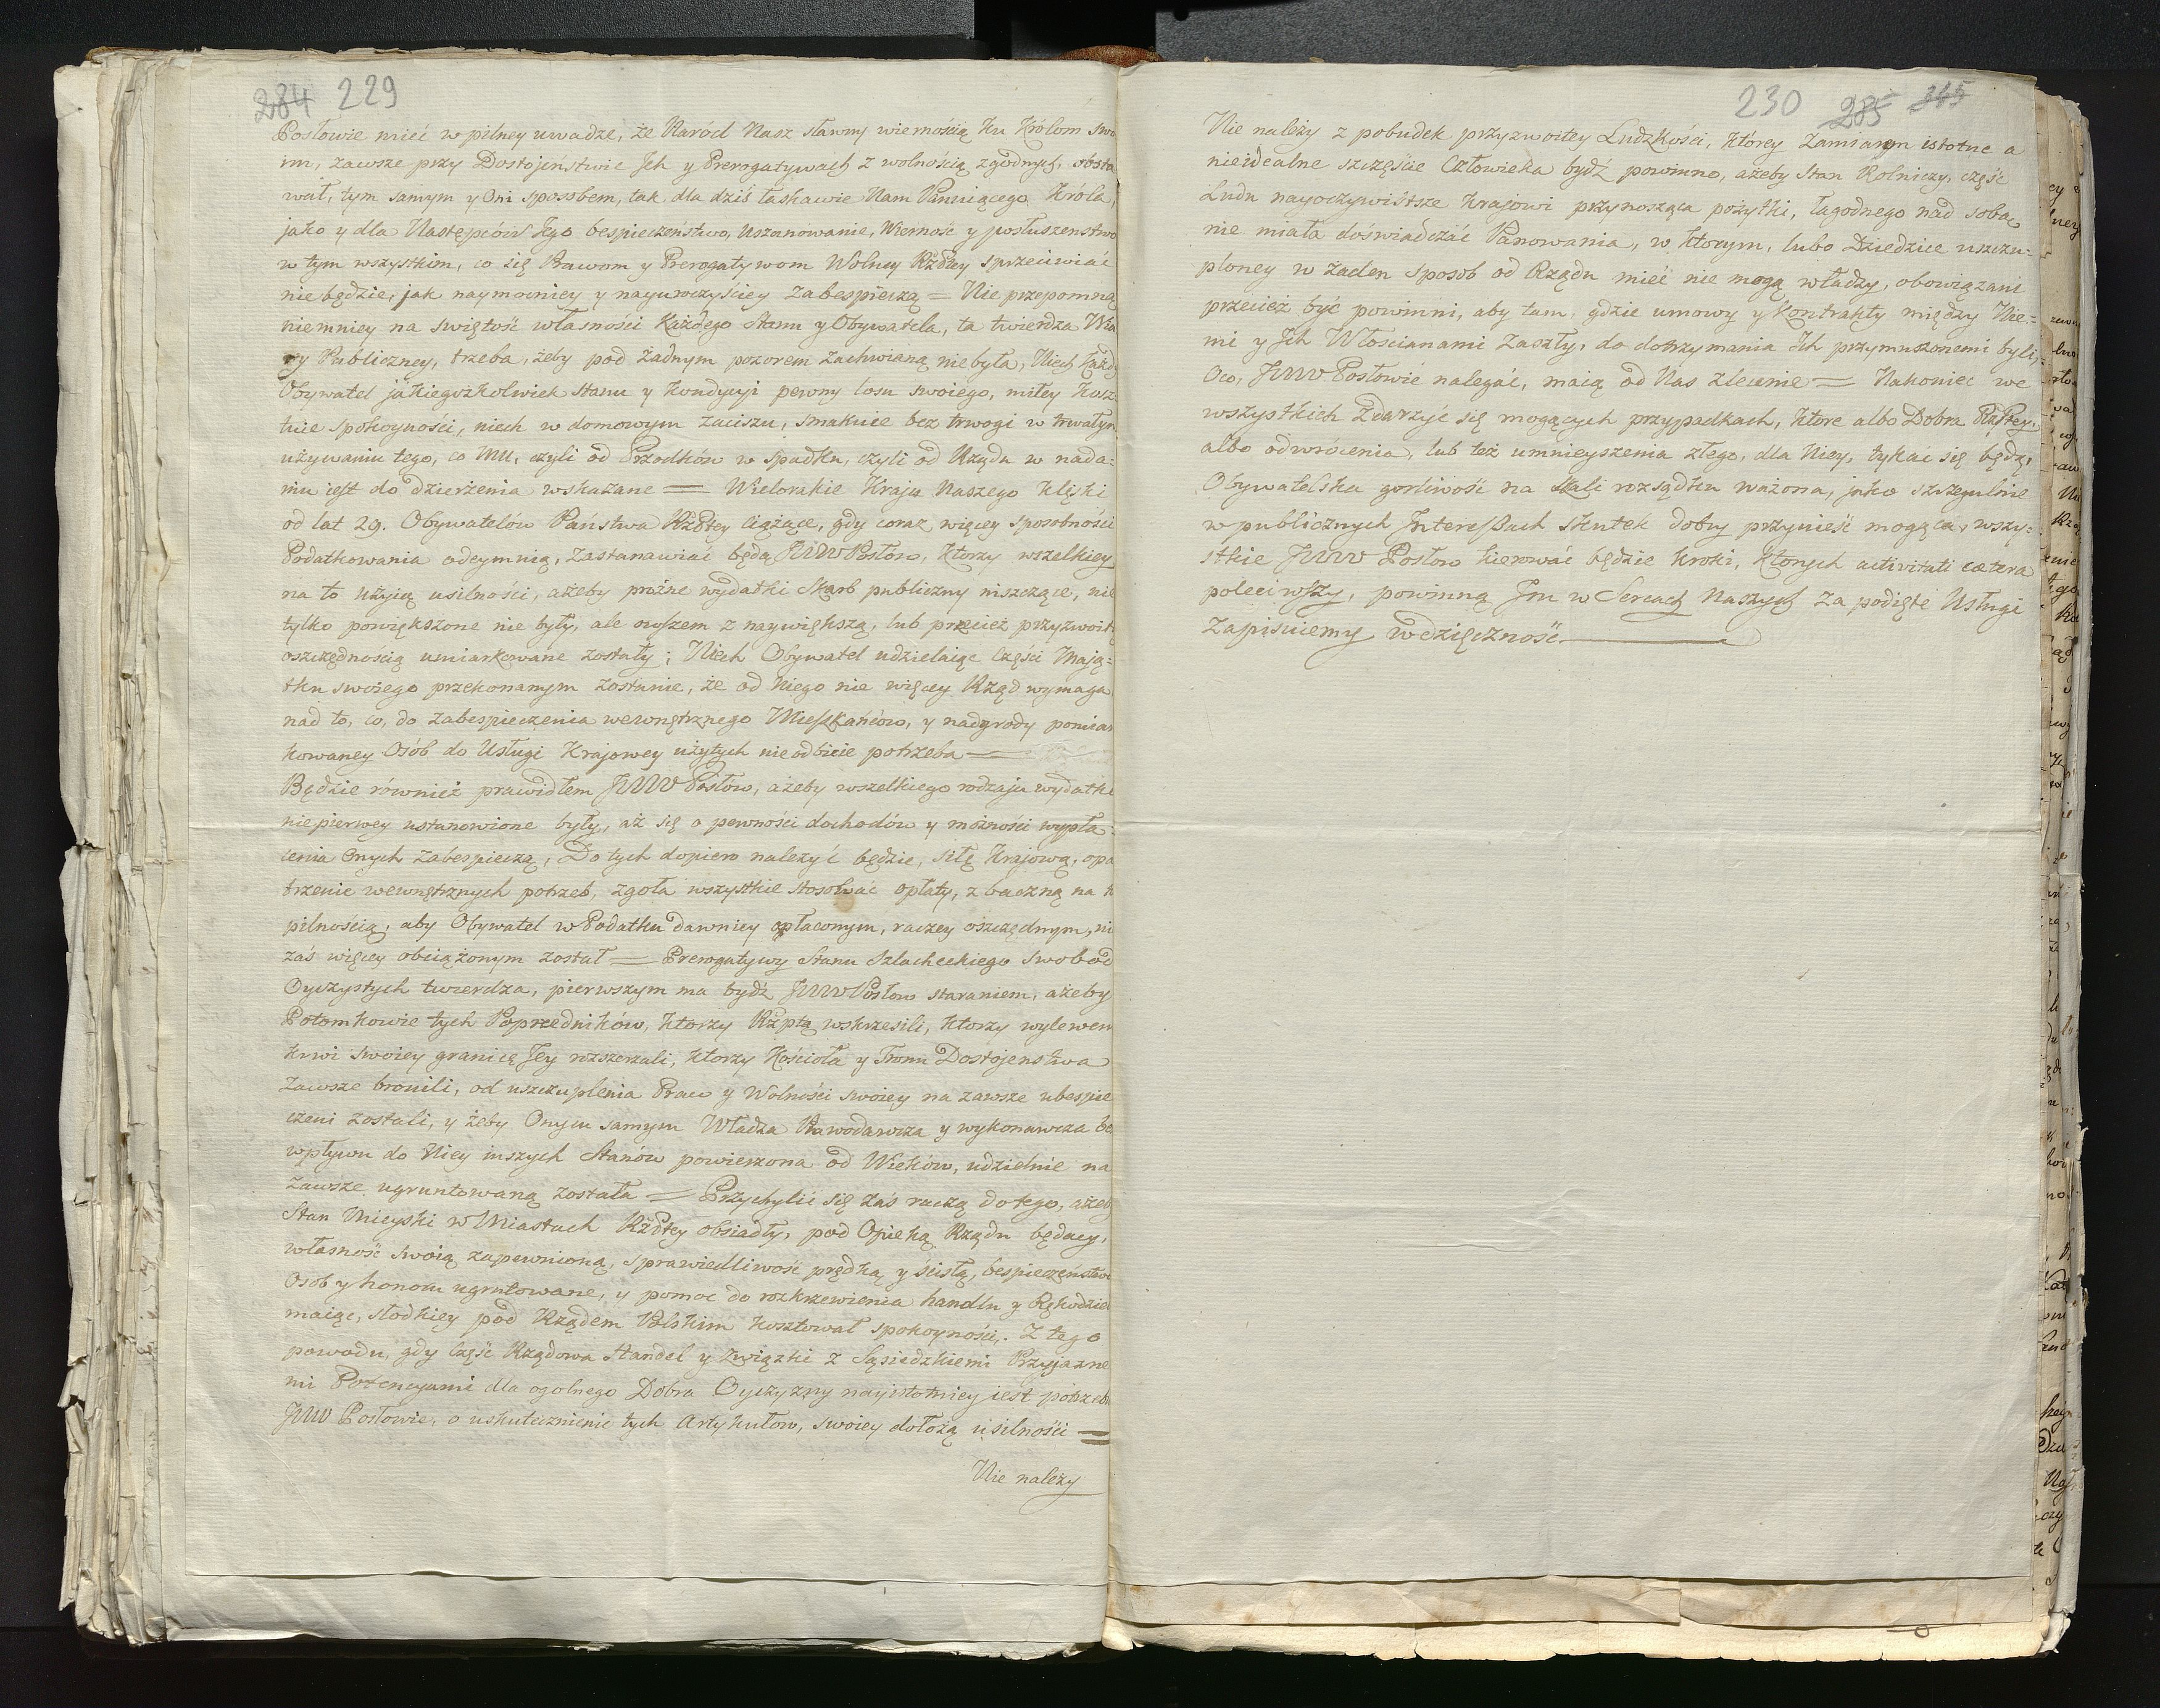 284 229
Posłowie mieć w pilney uwadze, że Naród Nasz sławny wiernością ku Królom swo
im, zawsze przy Dostojeństwie Jch y Prerogatywach z wolnością zgodnych, obsta
wał, tym samym y Oni sposobem, tak dla dziś łaskawie Nam Panuiącego Króla,
jako y dla Następców Jego bespieczeństwo, Uszanowanie, Wierność y posłuszenstwo
w tym wszystkim, co się Prawom y Prerogatywom Wolney Rżpltey sprzeciwiać
nie będzie, jak naymocniey y nayuroczyściey zabespieczą = Nie przepomną
niemniey na swiętość własności Każdego Stanu y Obywatela, ta twierdza Wia
ry Publiczney, trzeba, żeby pod żadnym pozorem zachwianą nie była, Niech Każd
Obywatel jakiegożkolwiek stanu y kondycyi pewny losu swoiego, miłey kosz
tuie spokoyności, niech w domowym zaciszu, smakuie bez trwogi w trwałym
używaniu tego, co Mu, czyli od Przodków w spadku, czyli od Rządu w nada-
niu iest do dzierżenia wskazane = Wielorakie Kraju Naszego klęski
od lat 29. Obywatelów Państwa Rżpltey ciążące, gdy coraz więcey sposobności
Podatkowania odeymuią, zastanawiać będą JWW Posłów, ktorzy wszelkiey
na to użyią usilności, ażeby próżne wydatki Skarb publiczny niszczące, nie
tylko powiększone nie były, ale owszem z naywiększą, lub przecież przyzwoitą
oszczędnością umiarkowane zostały; Niech Obywatel udzielaiąc Części Mają-
tku swoiego przekonanym zostanie, że od Niego nie więcey Rząd wymaga
nad to, co, do zabespieczenia wewnętrznego Mieszkańców, y nadgrody pomiar
kowaney Osób do Usługi Krajowey użytych nieodbicie potrzeba
Będzie również prawidłem JWW Posłów, ażeby wszelkiego rodzaju wydatki
niepierwey ustanowione były, aż się o pewności dochodów y możności wypła-
cenia Onych zabespieczą, Do tych dopiero należyć będzie, siłę Krajową, opa
trzenie wewnętrznych potrzeb, zgoła wszystkie stosować opłaty, z baczną na
pilnością, aby Obywatel w Podatku dawniey opłaconym, raczey oszczędnym, ni
zaś więcey obciążonym został = Prerogatywy Stanu Szlacheckiego Swobod
Oyczystych twierdza, pierwszym ma bydź JWW Posłow staraniem, ażeby
Potomkowie tych Poprzedników, ktorzy Rżptą wskrzesili, ktorzy wylewem
krwi swoiey granicę Jey rozszerzali, ktorzy Kościoła y Tronu Dostojenstwa
zawsze bronili, od uszczuplenia Praw y Wolności swoiey na zawsze ubespie
czeni zostali, y żeby Onym samym Władza Prawodawcza y wykonawcza be
wpływu do Niey inszych Stanów powierzona od Wieków, udzielnie na
zawsze ugruntowaną została = Przychylić się zaś raczą do tego, ażeby
Stan Mieyski w Miastach Rżpltey obsiadły, pod Opieką Rządu będący,
własność swoią zapewnioną, sprawiedliwość prędką y ścisłą, bespieczeństwo
Osób y honoru ugrutowane, y pomoc do rozkrzewienia handlu y Rękodzie
maiąc, słodkiey pod Rządem Polskim kosztował spokoyności. Z tego
powodu, gdy Część Rządowa Handel y związki z Sąsiedzkiemi Przyjazne
mi Potencyami dla ogolnego Dobra Oyczyzny nayistotniey iest potrzebn
JWW Posłowie, o uskutecznienie tych Artykułow, swoiey dołożą usilności =
Nie należy
230 285 345
Nie należy z pobudek przyzwoitey Ludzkości, ktorey Zamiarem istotne a
nieidealne szczęście Człowieka bydź powinno, ażeby Stan Rolniczy, część
Ludu nayoczywistsze Krajowi przynosząca pożytki, łagodnego nad sobą
nie miała doświadczać Panowania, w ktorym, lubo Dziedzice uszczu-
ploney w żaden sposob od Rządu mieć nie mogą władzy, obowiązani
przecież być powinni, aby tam, gdzie umowy y Kontrakty między Nie-
mi y Jch Włoscianami zaszły, do dotrzymania Jch przymuszonemi byli,
Oco, JWW Posłowie nalegać, maią od Nas zlecenie = Nakoniec we
wszystkich zdarzyć się mogących przypadkach, ktore albo Dobra Rżpltey,
albo odwrócenia, lub też umnieyszenia złego, dla Niey, tykać się będą,
Obywatelska gorliwość na skali rozsądku ważona, jako szczegulnie
w publicznych Interessach skutek dobry przynieść mogąca, wszy-
stkie JWW Posłow kierować będzie kroki, Ktorych activitati cætera
poleciwszy, powinną Jm w Sercach Naszych za podięte Usługi
zapisuiemy wdzięczność